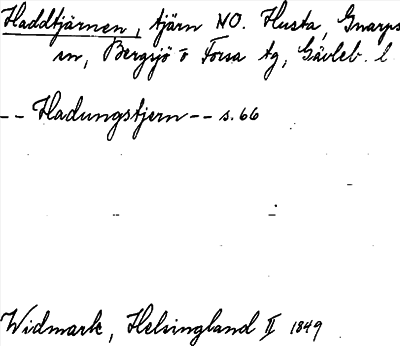 Haddtjärnen, tjärn NO. Husta, Gnarps
sn, Bergsjö o Forsa tg, Gävleb. l
-- Hadungstjern -- s. 66
Widmark, Helsingland II 1849